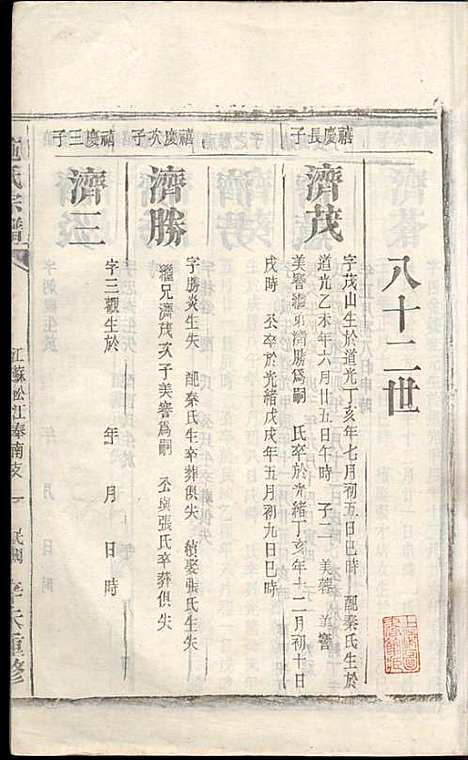 八十二世
禧慶長子
濟茂
字茂山生於道光丁亥年七月初五日巳時 配秦氏生於
道光乙未年六月廿五日午時 子二 美蓉 美響
美響繼弟濟勝爲嗣 氏卒於光緒丁亥年十二月初十日
戌時 公卒於光緒戊戌年五月初九日巳時
禧慶次子
濟勝
字勝炎生失 配秦氏生卒葬俱失 續娶張氏生失
繼兄濟茂次子美響爲嗣 公與張氏卒葬俱失
禧慶三子
濟三
字三觀生於 年 月 日 時
氏宗譜
江蘇松江奉南支 一 民國 重修